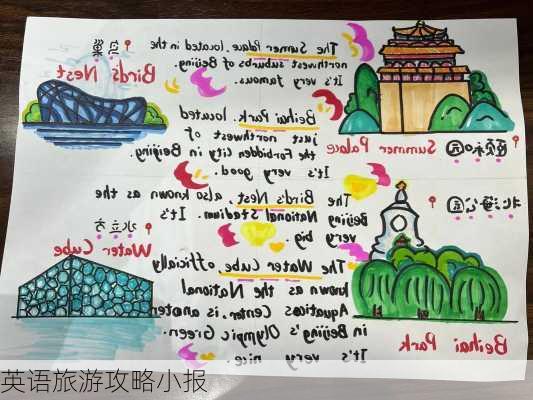 鸟巢
Bird's Nest
The Summer Palace. located in the
northwest suburbs of Beijing.
It's very famous.
颐和园
Summer Palace
Beihai Park. located
just northwest of
the Forbidden City in Beijing.
It's very good.
水立方
Water Cube
The Bird's Nest. also known as the
Beijing National Stadium. It's
very big.
北海公园
Beihai Park
The Water Cube officially
known as the National
Aquatics Center, is
in Beijing's Olympic Green.
It's very nice.
英语旅游攻略小报